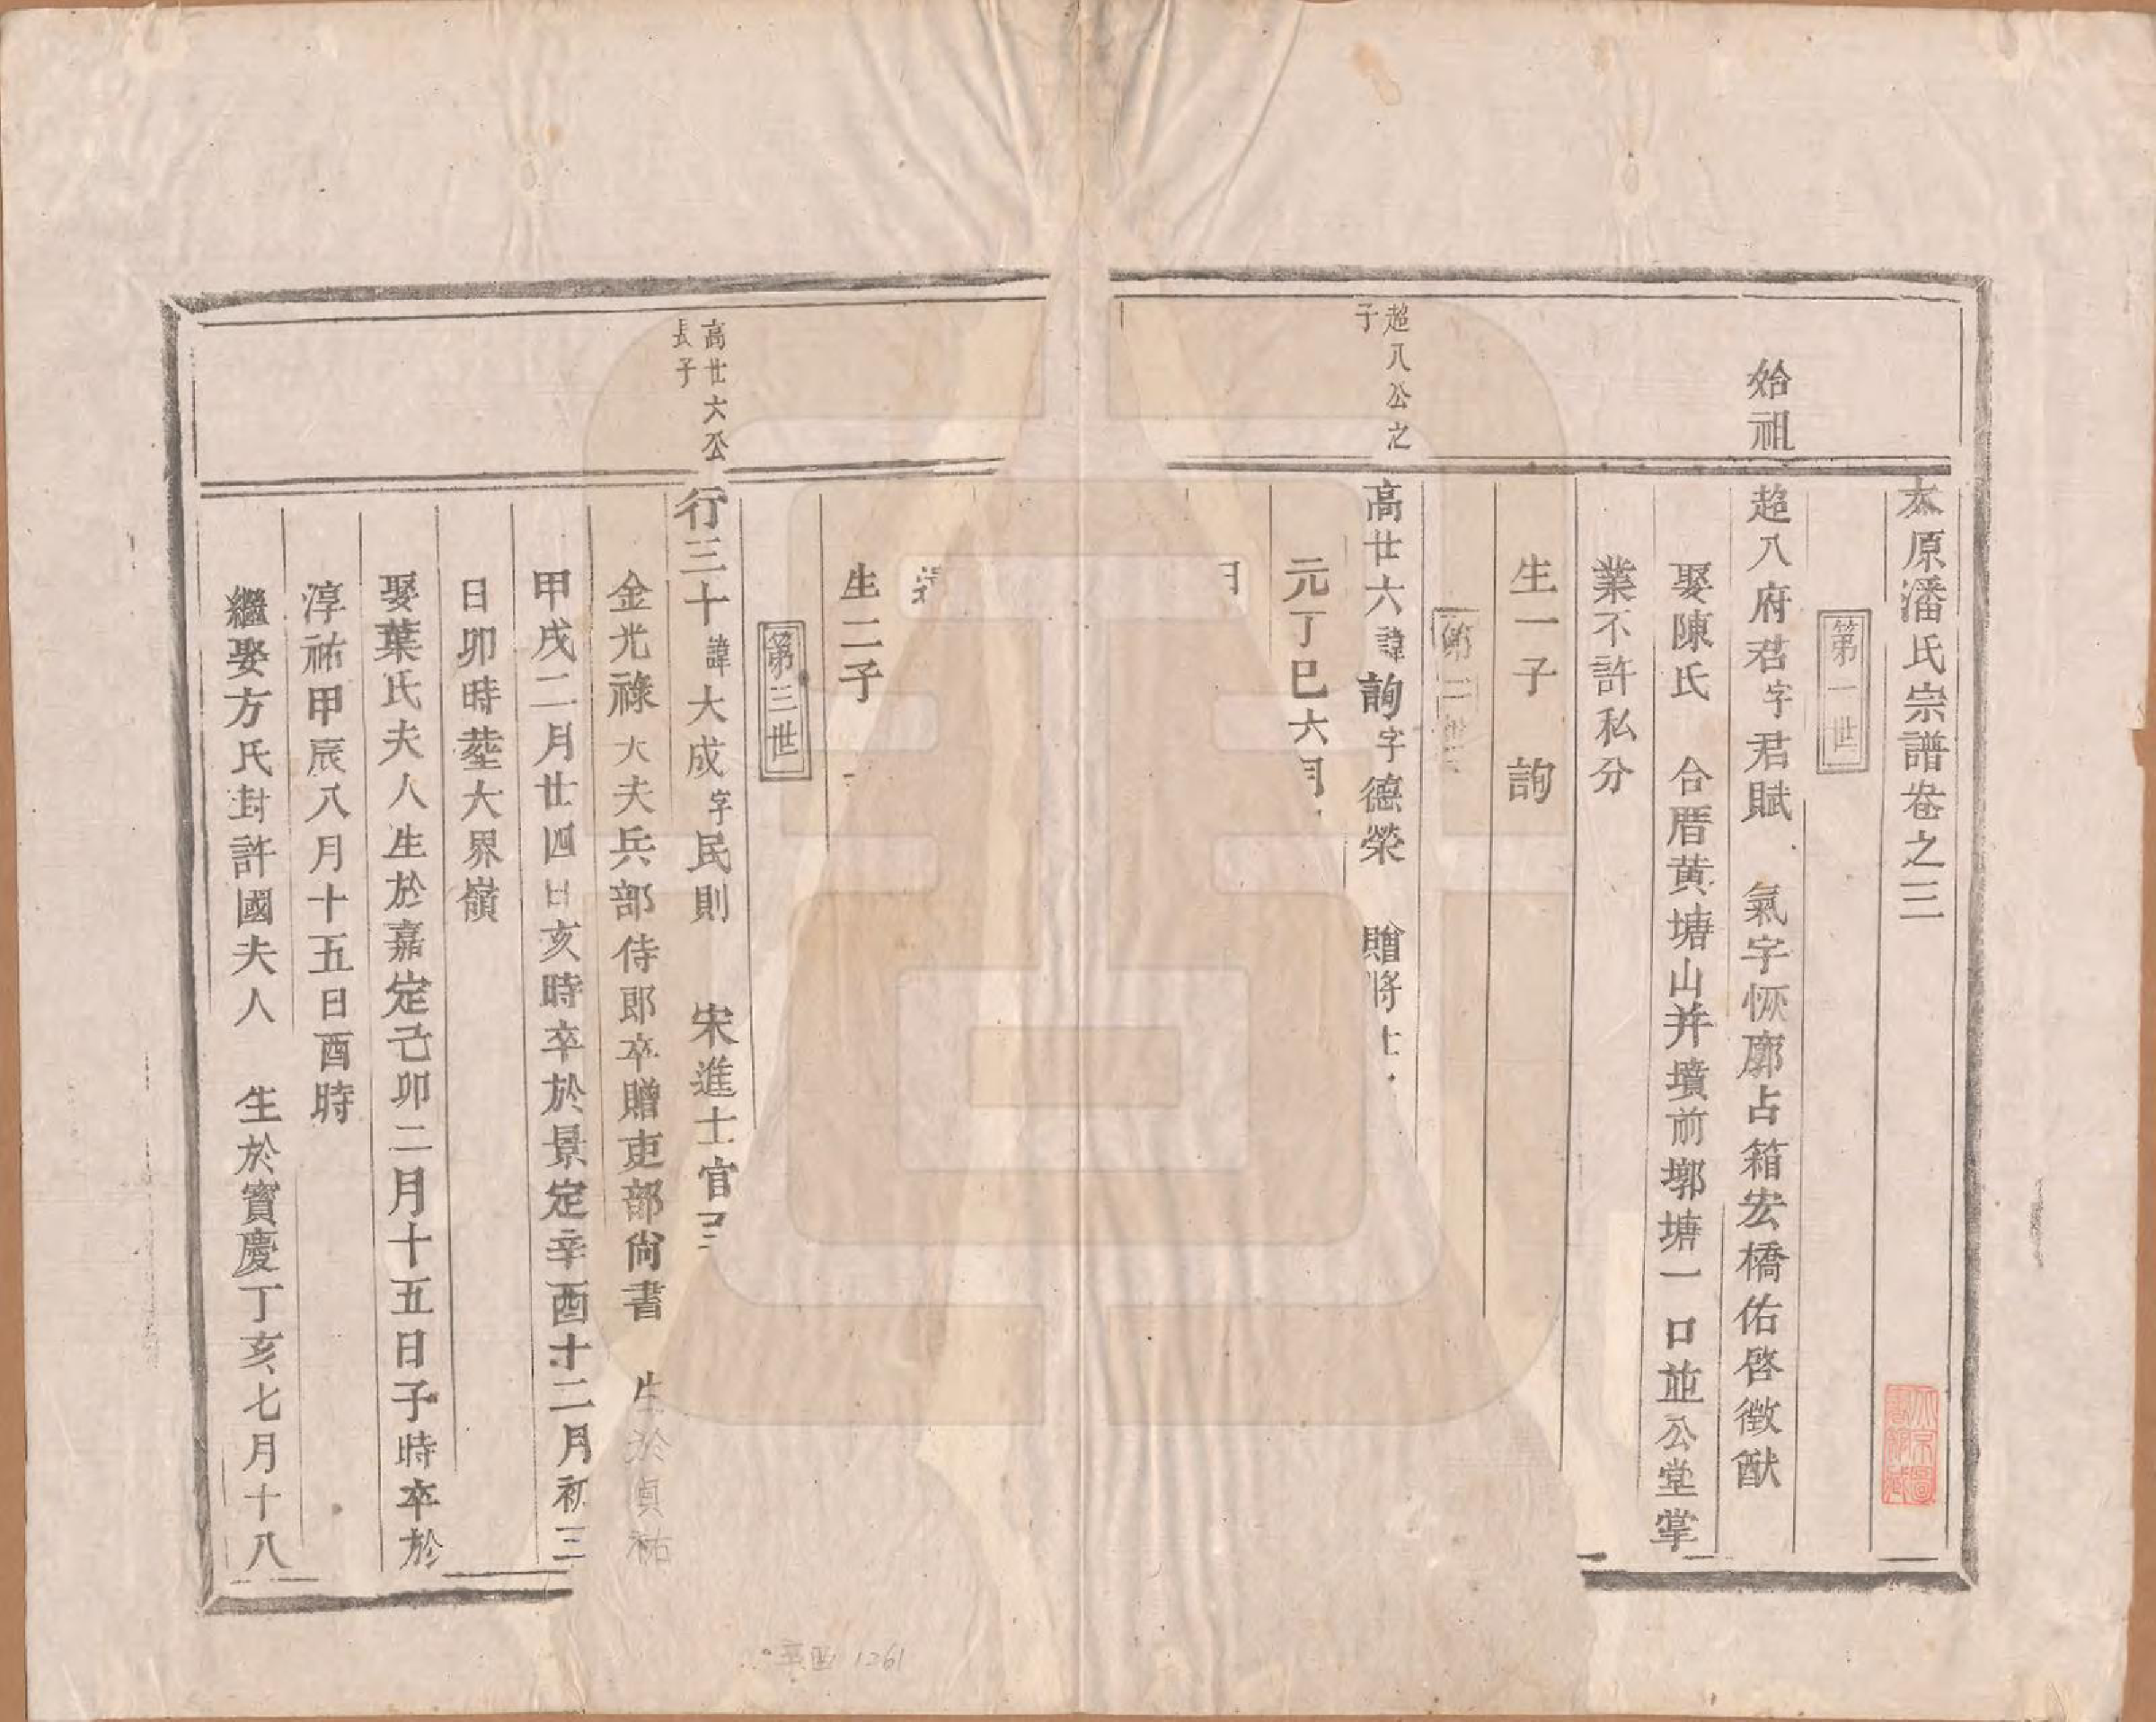 太原潘氏宗譜卷之三
第一世
始祖
超八府君字君賦　氣宇恢廓占籍宏橋佑啓徵猷
娶陳氏　合厝黃塘山并墳前墎塘一口並公堂掌
業不許私分
生一子　詢
第二世
超八公之子
高廿六諱詢字德榮　贈將士
元丁巳六月
月
生二子
第三世
高廿六公長子
行三十諱大成字民則　宋進士官
金光祿大夫兵部侍郎卒贈吏部尙書　生於貞祐
甲戌二月廿四日亥時卒於景定辛酉十二月初三
日卯時塟大界嶺
娶葉氏夫人生於嘉定己卯二月十五日子時卒於
淳祐甲辰八月十五日酉時
繼娶方氏封許國夫人　生於寶慶丁亥七月十八
1261